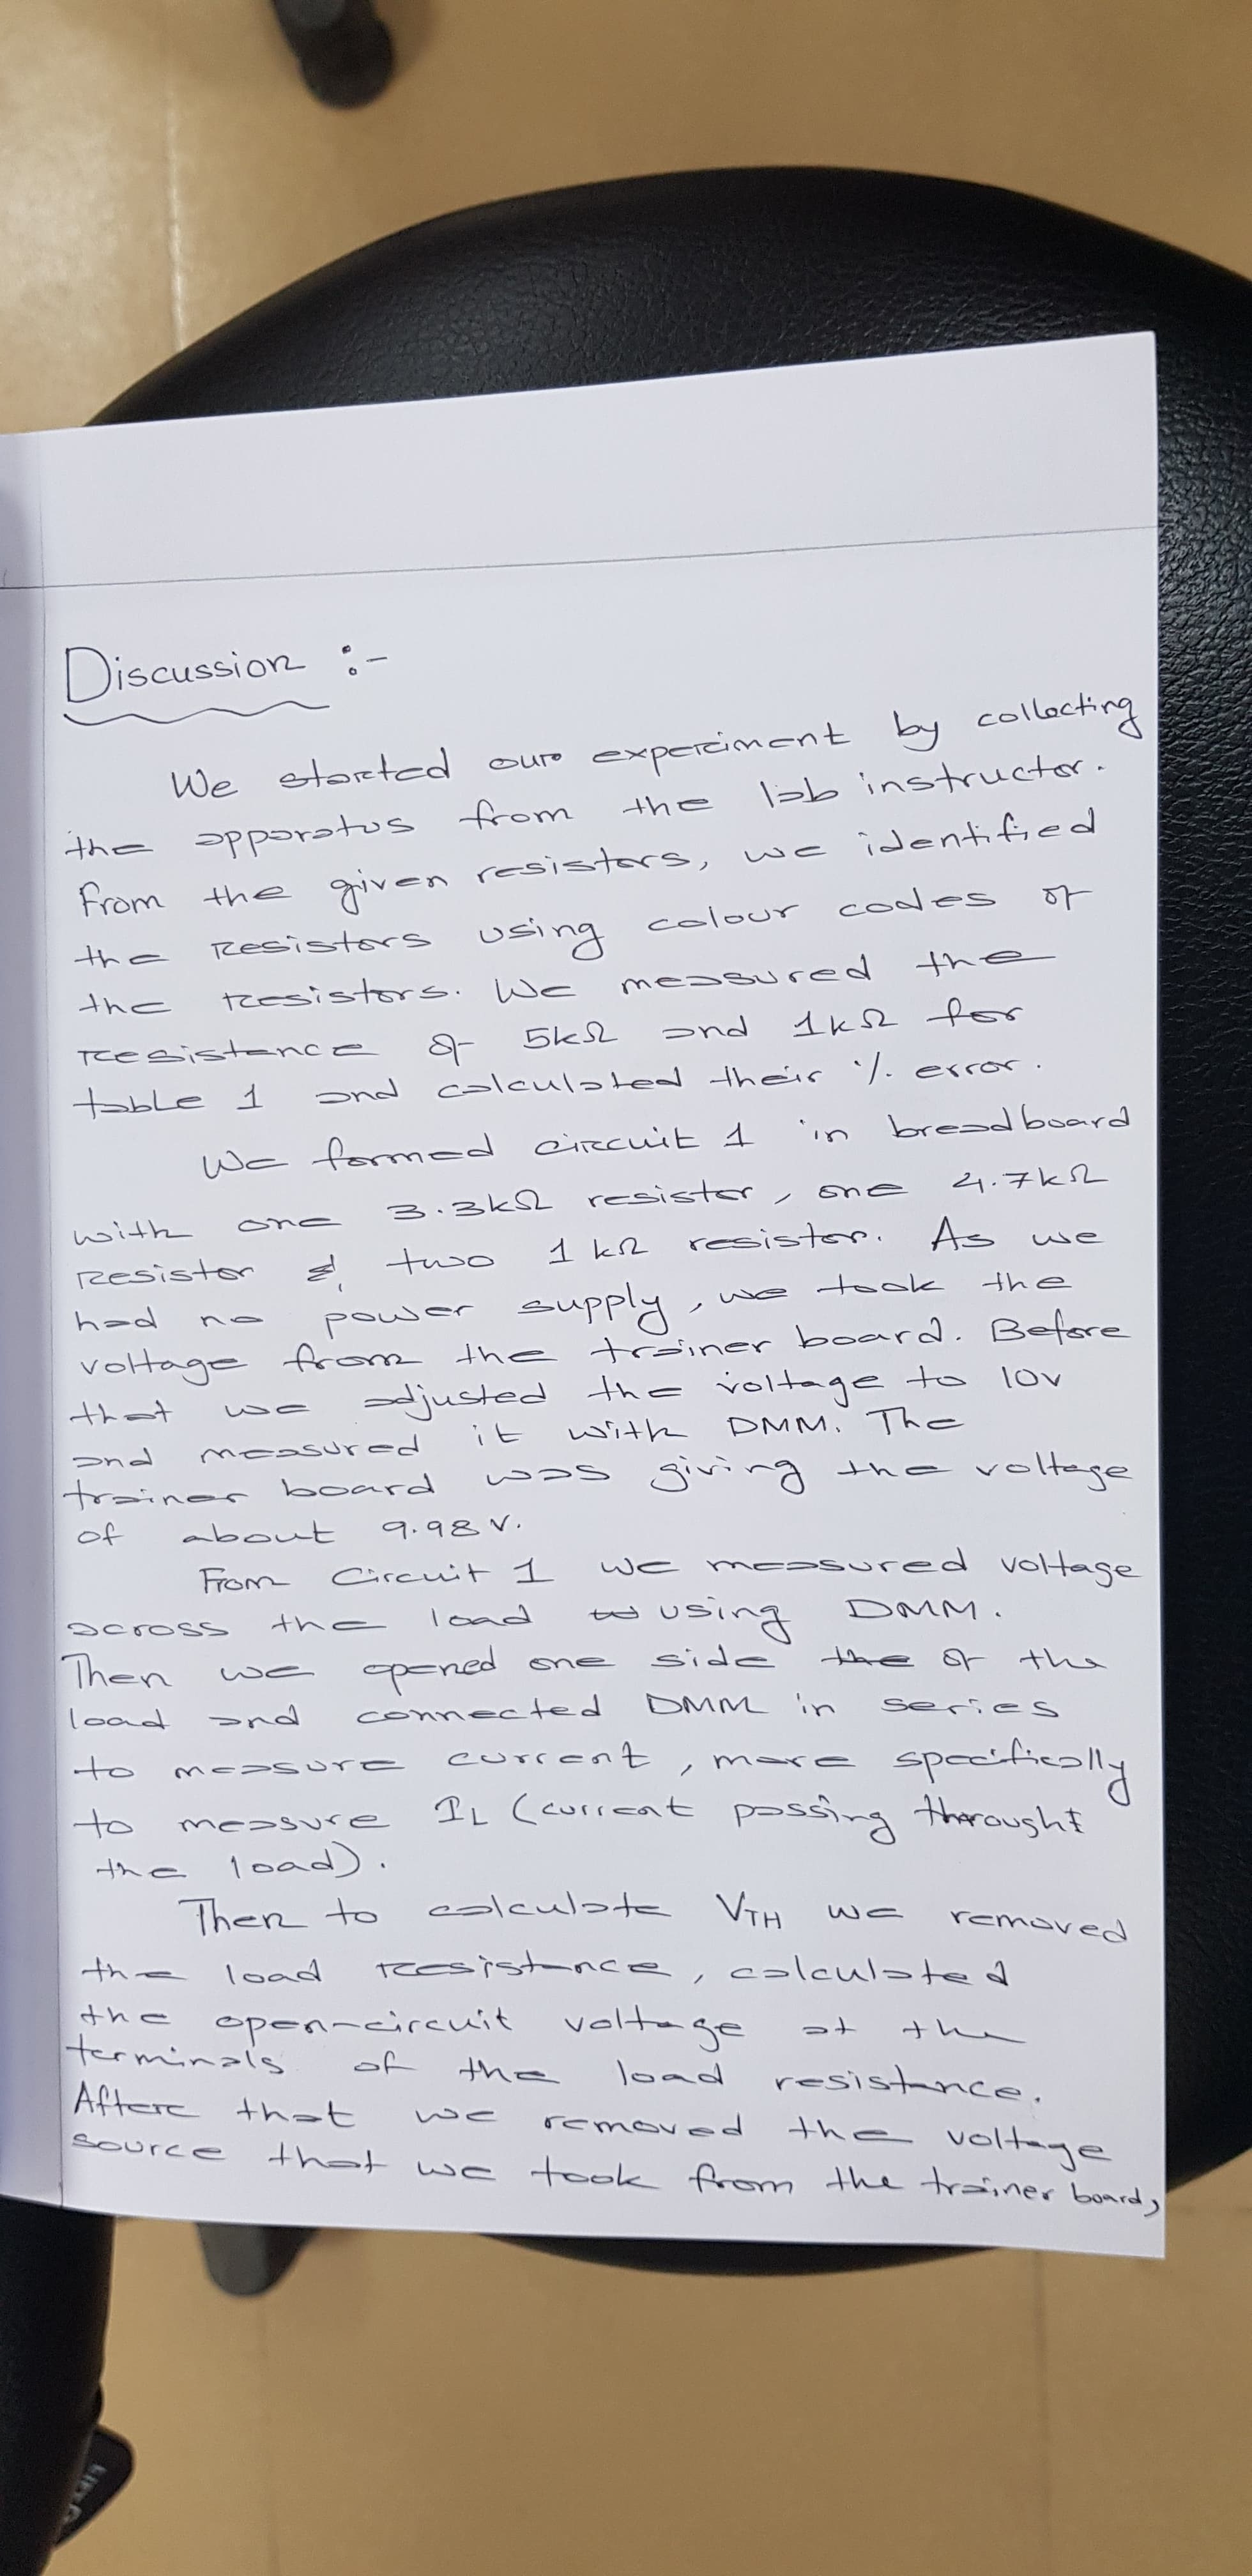 Discussion :-
We started our experiment by collecting
the apparatus from the lab instructor.
From the given resistors, we identified
the resistors using colour codes of
the resistors. We measured the
resistance of 5kΩ and 1kΩ for
table 1 and calculated their % error.
We formed circuit 1 in breadboard
with one 3.3kΩ resistor, one 4.7kΩ
resistor & two 1kΩ resistor. As we
had no power supply, we took the
voltage from the trainer board. Before
that we adjusted the voltage to 10v
and measured it with DMM. The
trainer board was giving the voltage
of about 9.98 V.
From Circuit 1 we measured voltage
across the load using DMM.
Then we opened one side the of the
load and connected DMM in series
to measure current, more specifically
to measure IL (current passing throught
the load).
Then to calculate VTH we removed
the load resistance, calculated
the open-circuit voltage at the
terminals of the load resistance.
After that we removed the voltage
source that we took from the trainer board,